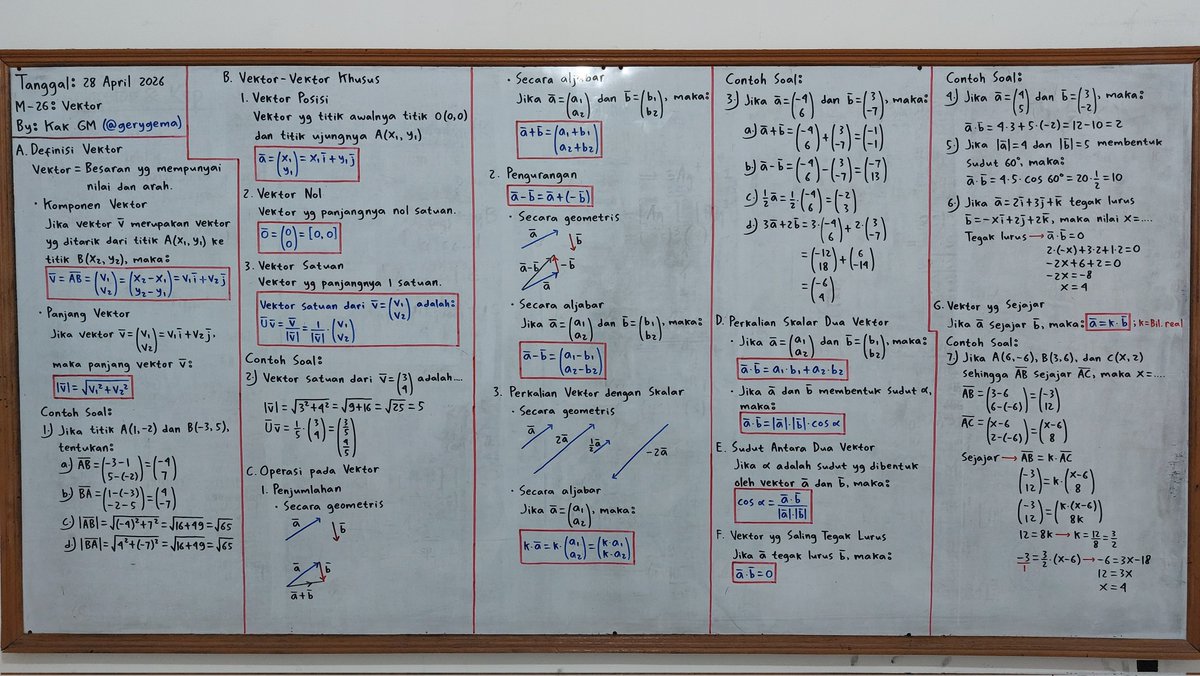 Tanggal: 28 April 2026
M-26: Vektor
By: Kak GM (@gerygema)
A. Definisi Vektor
Vektor = Besaran yg mempunyai
nilai dan arah.
• Komponen Vektor
Jika vektor v̅ merupakan vektor
yg ditarik dari titik A(x₁, y₁) ke
titik B(x₂, y₂), maka:
v̅ = A̅B̅ = (v₁ / v₂) = (x₂-x₁ / y₂-y₁) = v₁i̅ + v₂j̅
• Panjang Vektor
Jika vektor v̅ = (v₁ / v₂) = v₁i̅ + v₂j̅,
maka panjang vektor v̅:
|v̅| = √(v₁² + v₂²)
Contoh Soal:
1.) Jika titik A(1,-2) dan B(-3,5),
tentukan:
a.) A̅B̅ = (-3-1 / 5-(-2)) = (-4 / 7)
b.) B̅A̅ = (1-(-3) / -2-5) = (4 / -7)
c.) |A̅B̅| = √((-4)²+7²) = √(16+49) = √65
d.) |B̅A̅| = √(4²+(-7)²) = √(16+49) = √65
B. Vektor-Vektor Khusus
1. Vektor Posisi
Vektor yg titik awalnya titik O(0,0)
dan titik ujungnya A(x₁, y₁)
a̅ = (x₁ / y₁) = x₁i̅ + y₁j̅
2. Vektor Nol
Vektor yg panjangnya nol satuan.
O̅ = (0 / 0) = [0,0]
3. Vektor Satuan
Vektor yg panjangnya 1 satuan.
Vektor satuan dari v̅ = (v₁ / v₂) adalah:
U̅v̅ = v̅/|v̅| = 1/|v̅| · (v₁ / v₂)
Contoh Soal:
2.) Vektor satuan dari v̅ = (3 / 4) adalah....
|v̅| = √(3²+4²) = √(9+16) = √25 = 5
U̅v̅ = 1/5 · (3 / 4) = (3/5 / 4/5)
C. Operasi pada Vektor
1. Penjumlahan
• Secara geometris
a̅ b̅
a̅ b̅
a̅+b̅
• Secara aljabar
Jika a̅ = (a₁ / a₂) dan b̅ = (b₁ / b₂), maka:
a̅+b̅ = (a₁+b₁ / a₂+b₂)
2. Pengurangan
a̅-b̅ = a̅+(-b̅)
• Secara geometris
a̅ b̅
a̅-b̅ -b̅
a̅
• Secara aljabar
Jika a̅ = (a₁ / a₂) dan b̅ = (b₁ / b₂), maka:
a̅-b̅ = (a₁-b₁ / a₂-b₂)
3. Perkalian Vektor dengan Skalar
• Secara geometris
a̅ 2a̅ ½a̅ -2a̅
• Secara aljabar
Jika a̅ = (a₁ / a₂), maka:
k·a̅ = k·(a₁ / a₂) = (k·a₁ / k·a₂)
Contoh Soal:
3.) Jika a̅ = (-4 / 6) dan b̅ = (3 / -7), maka:
a.) a̅+b̅ = (-4 / 6) + (3 / -7) = (-1 / -1)
b.) a̅-b̅ = (-4 / 6) - (3 / -7) = (-7 / 13)
c.) ½a̅ = ½·(-4 / 6) = (-2 / 3)
d.) 3a̅+2b̅ = 3·(-4 / 6) + 2·(3 / -7)
= (-12 / 18) + (6 / -14)
= (-6 / 4)
D. Perkalian Skalar Dua Vektor
• Jika a̅ = (a₁ / a₂) dan b̅ = (b₁ / b₂), maka:
a̅·b̅ = a₁·b₁ + a₂·b₂
• Jika a̅ dan b̅ membentuk sudut α,
maka:
a̅·b̅ = |a̅|·|b̅|·cos α
E. Sudut Antara Dua Vektor
Jika α adalah sudut yg dibentuk
oleh vektor a̅ dan b̅, maka:
cos α = a̅·b̅ / |a̅|·|b̅|
F. Vektor yg Saling Tegak Lurus
Jika a̅ tegak lurus b̅, maka:
a̅·b̅ = 0
Contoh Soal:
4.) Jika a̅ = (4 / 5) dan b̅ = (3 / -2), maka:
a̅·b̅ = 4·3+5·(-2) = 12-10 = 2
5.) Jika |a̅|=4 dan |b̅|=5 membentuk
sudut 60°, maka:
a̅·b̅ = 4·5·cos 60° = 20·½ = 10
6.) Jika a̅ = 2i̅+3j̅+k̅ tegak lurus
b̅ = -xi̅+2j̅+2k̅, maka nilai x=....
Tegak lurus → a̅·b̅ = 0
2·(-x)+3·2+1·2 = 0
-2x+6+2 = 0
-2x = -8
x = 4
G. Vektor yg Sejajar
Jika a̅ sejajar b̅, maka: a̅ = k·b̅ ; k = Bil. real
Contoh Soal:
7.) Jika A(6,-6), B(3,6), dan C(x,2)
Sehingga A̅B̅ sejajar A̅C̅, maka x=....
A̅B̅ = (3-6 / 6-(-6)) = (-3 / 12)
A̅C̅ = (x-6 / 2-(-6)) = (x-6 / 8)
Sejajar → A̅B̅ = k·A̅C̅
(-3 / 12) = k·(x-6 / 8)
(-3 / 12) = (k·(x-6) / 8k)
12 = 8k → k = 12/8 = 3/2
-3/1 = 3/2·(x-6) → -6 = 3x-18
12 = 3x
x = 4